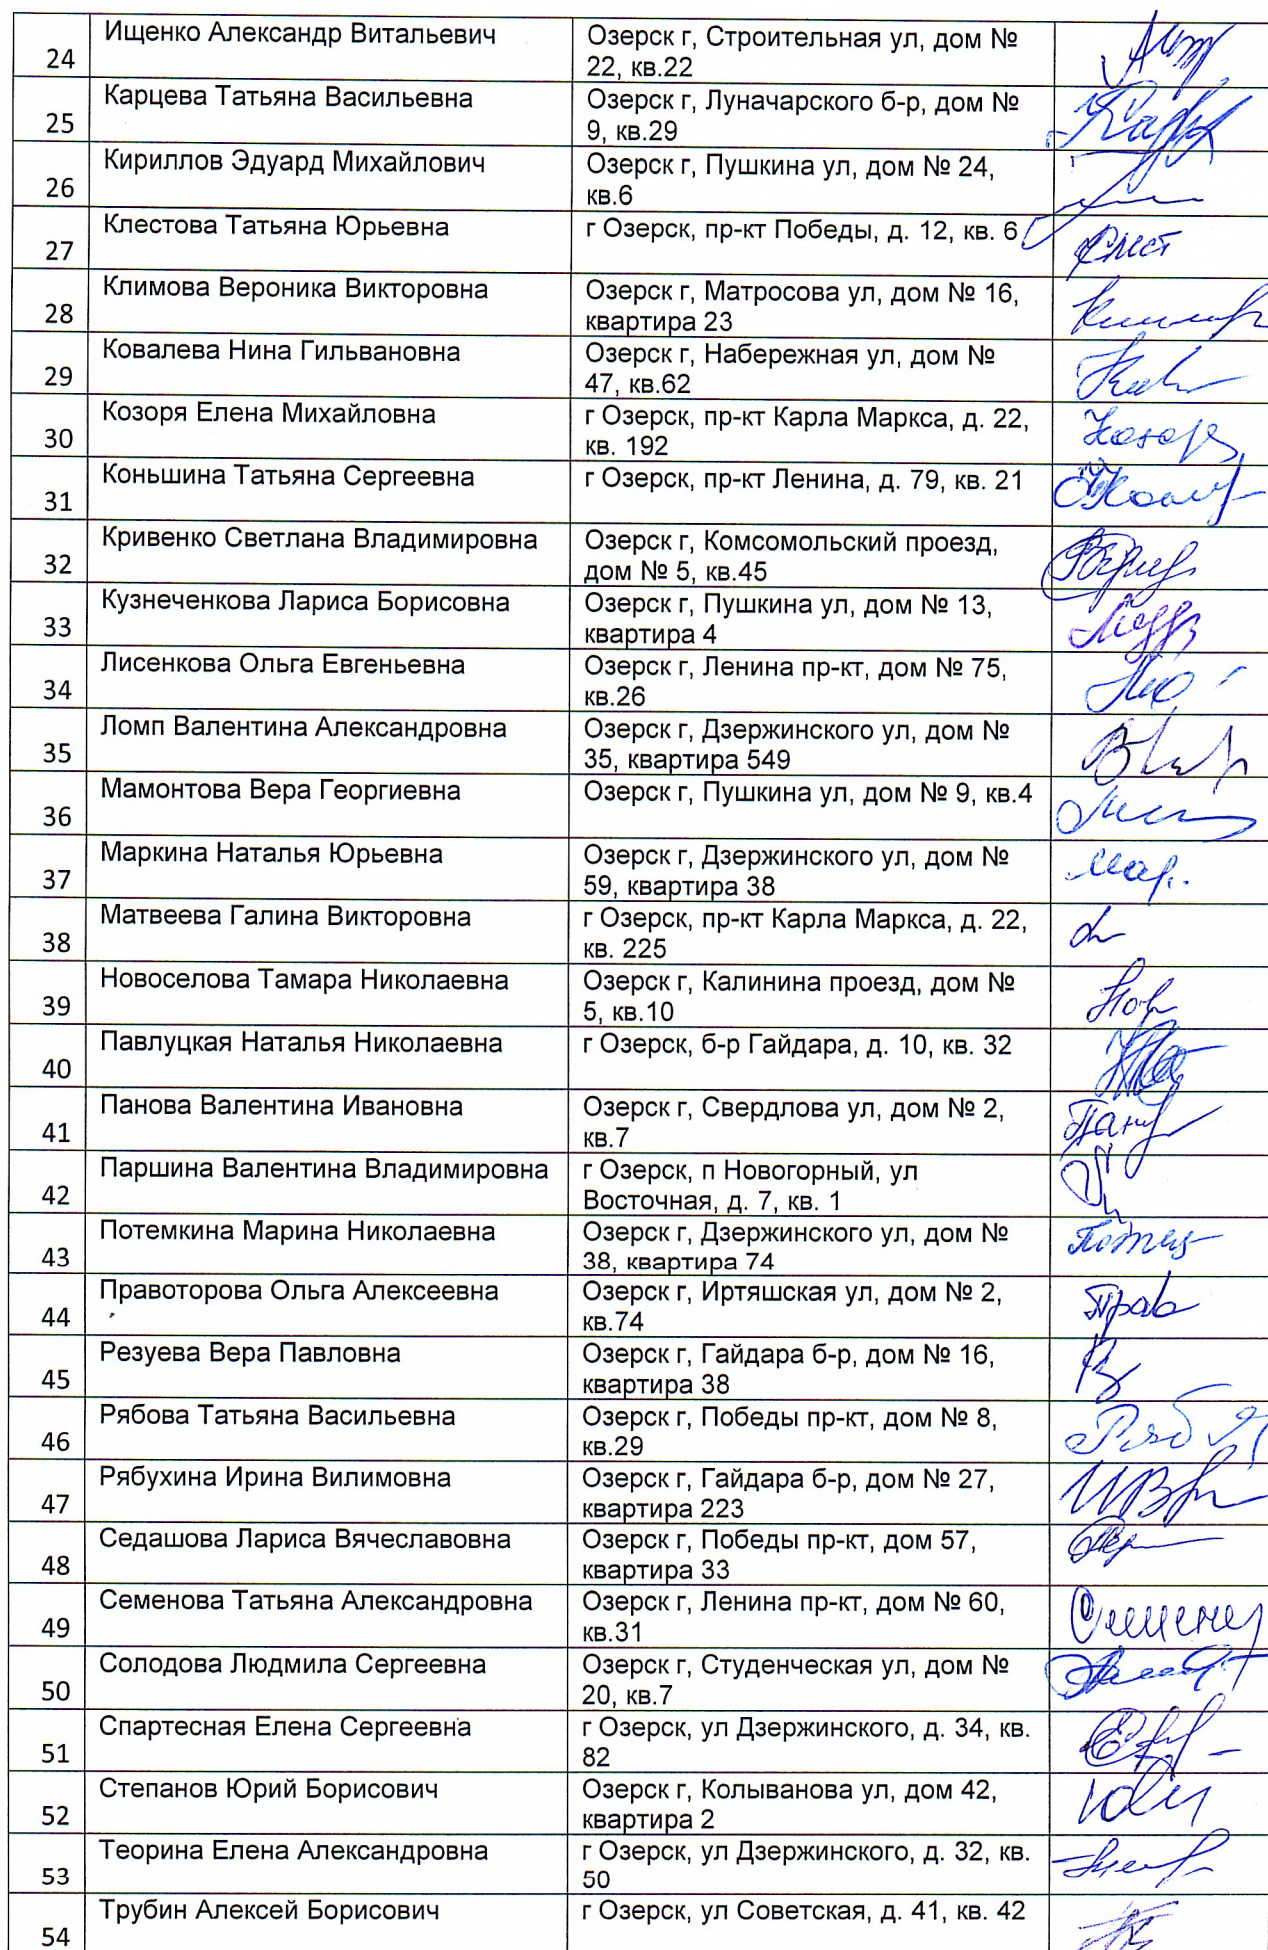 24 Ищенко Александр Витальевич Озерск г, Строительная ул, дом №
22, кв.22
25 Карцева Татьяна Васильевна Озерск г, Луначарского б-р, дом №
9, кв.29
26 Кириллов Эдуард Михайлович Озерск г, Пушкина ул, дом № 24,
кв.6
27 Клестова Татьяна Юрьевна г Озерск, пр-кт Победы, д. 12, кв. 6
28 Климова Вероника Викторовна Озерск г, Матросова ул, дом № 16,
квартира 23
29 Ковалева Нина Гильвановна Озерск г, Набережная ул, дом №
47, кв.62
30 Козоря Елена Михайловна г Озерск, пр-кт Карла Маркса, д. 22,
кв. 192
31 Коньшина Татьяна Сергеевна г Озерск, пр-кт Ленина, д. 79, кв. 21
32 Кривенко Светлана Владимировна Озерск г, Комсомольский проезд,
дом № 5, кв.45
33 Кузнеченкова Лариса Борисовна Озерск г, Пушкина ул, дом № 13,
квартира 4
34 Лисенкова Ольга Евгеньевна Озерск г, Ленина пр-кт, дом № 75,
кв.26
35 Ломп Валентина Александровна Озерск г, Дзержинского ул, дом №
35, квартира 549
36 Мамонтова Вера Георгиевна Озерск г, Пушкина ул, дом № 9, кв.4
37 Маркина Наталья Юрьевна Озерск г, Дзержинского ул, дом №
59, квартира 38
38 Матвеева Галина Викторовна г Озерск, пр-кт Карла Маркса, д. 22,
кв. 225
39 Новоселова Тамара Николаевна Озерск г, Калинина проезд, дом №
5, кв.10
40 Павлуцкая Наталья Николаевна г Озерск, б-р Гайдара, д. 10, кв. 32
41 Панова Валентина Ивановна Озерск г, Свердлова ул, дом № 2,
кв.7
42 Паршина Валентина Владимировна г Озерск, п Новогорный, ул
Восточная, д. 7, кв. 1
43 Потемкина Марина Николаевна Озерск г, Дзержинского ул, дом №
38, квартира 74
44 Правоторова Ольга Алексеевна Озерск г, Иртяшская ул, дом № 2,
кв.74
45 Резуева Вера Павловна Озерск г, Гайдара б-р, дом № 16,
квартира 38
46 Рябова Татьяна Васильевна Озерск г, Победы пр-кт, дом № 8,
кв.29
47 Рябухина Ирина Вилимовна Озерск г, Гайдара б-р, дом № 27,
квартира 223
48 Седашова Лариса Вячеславовна Озерск г, Победы пр-кт, дом 57,
квартира 33
49 Семенова Татьяна Александровна Озерск г, Ленина пр-кт, дом № 60,
кв.31
50 Солодова Людмила Сергеевна Озерск г, Студенческая ул, дом №
20, кв.7
51 Спартесная Елена Сергеевна г Озерск, ул Дзержинского, д. 34, кв.
82
52 Степанов Юрий Борисович Озерск г, Колыванова ул, дом 42,
квартира 2
53 Теорина Елена Александровна г Озерск, ул Дзержинского, д. 32, кв.
50
54 Трубин Алексей Борисович г Озерск, ул Советская, д. 41, кв. 42